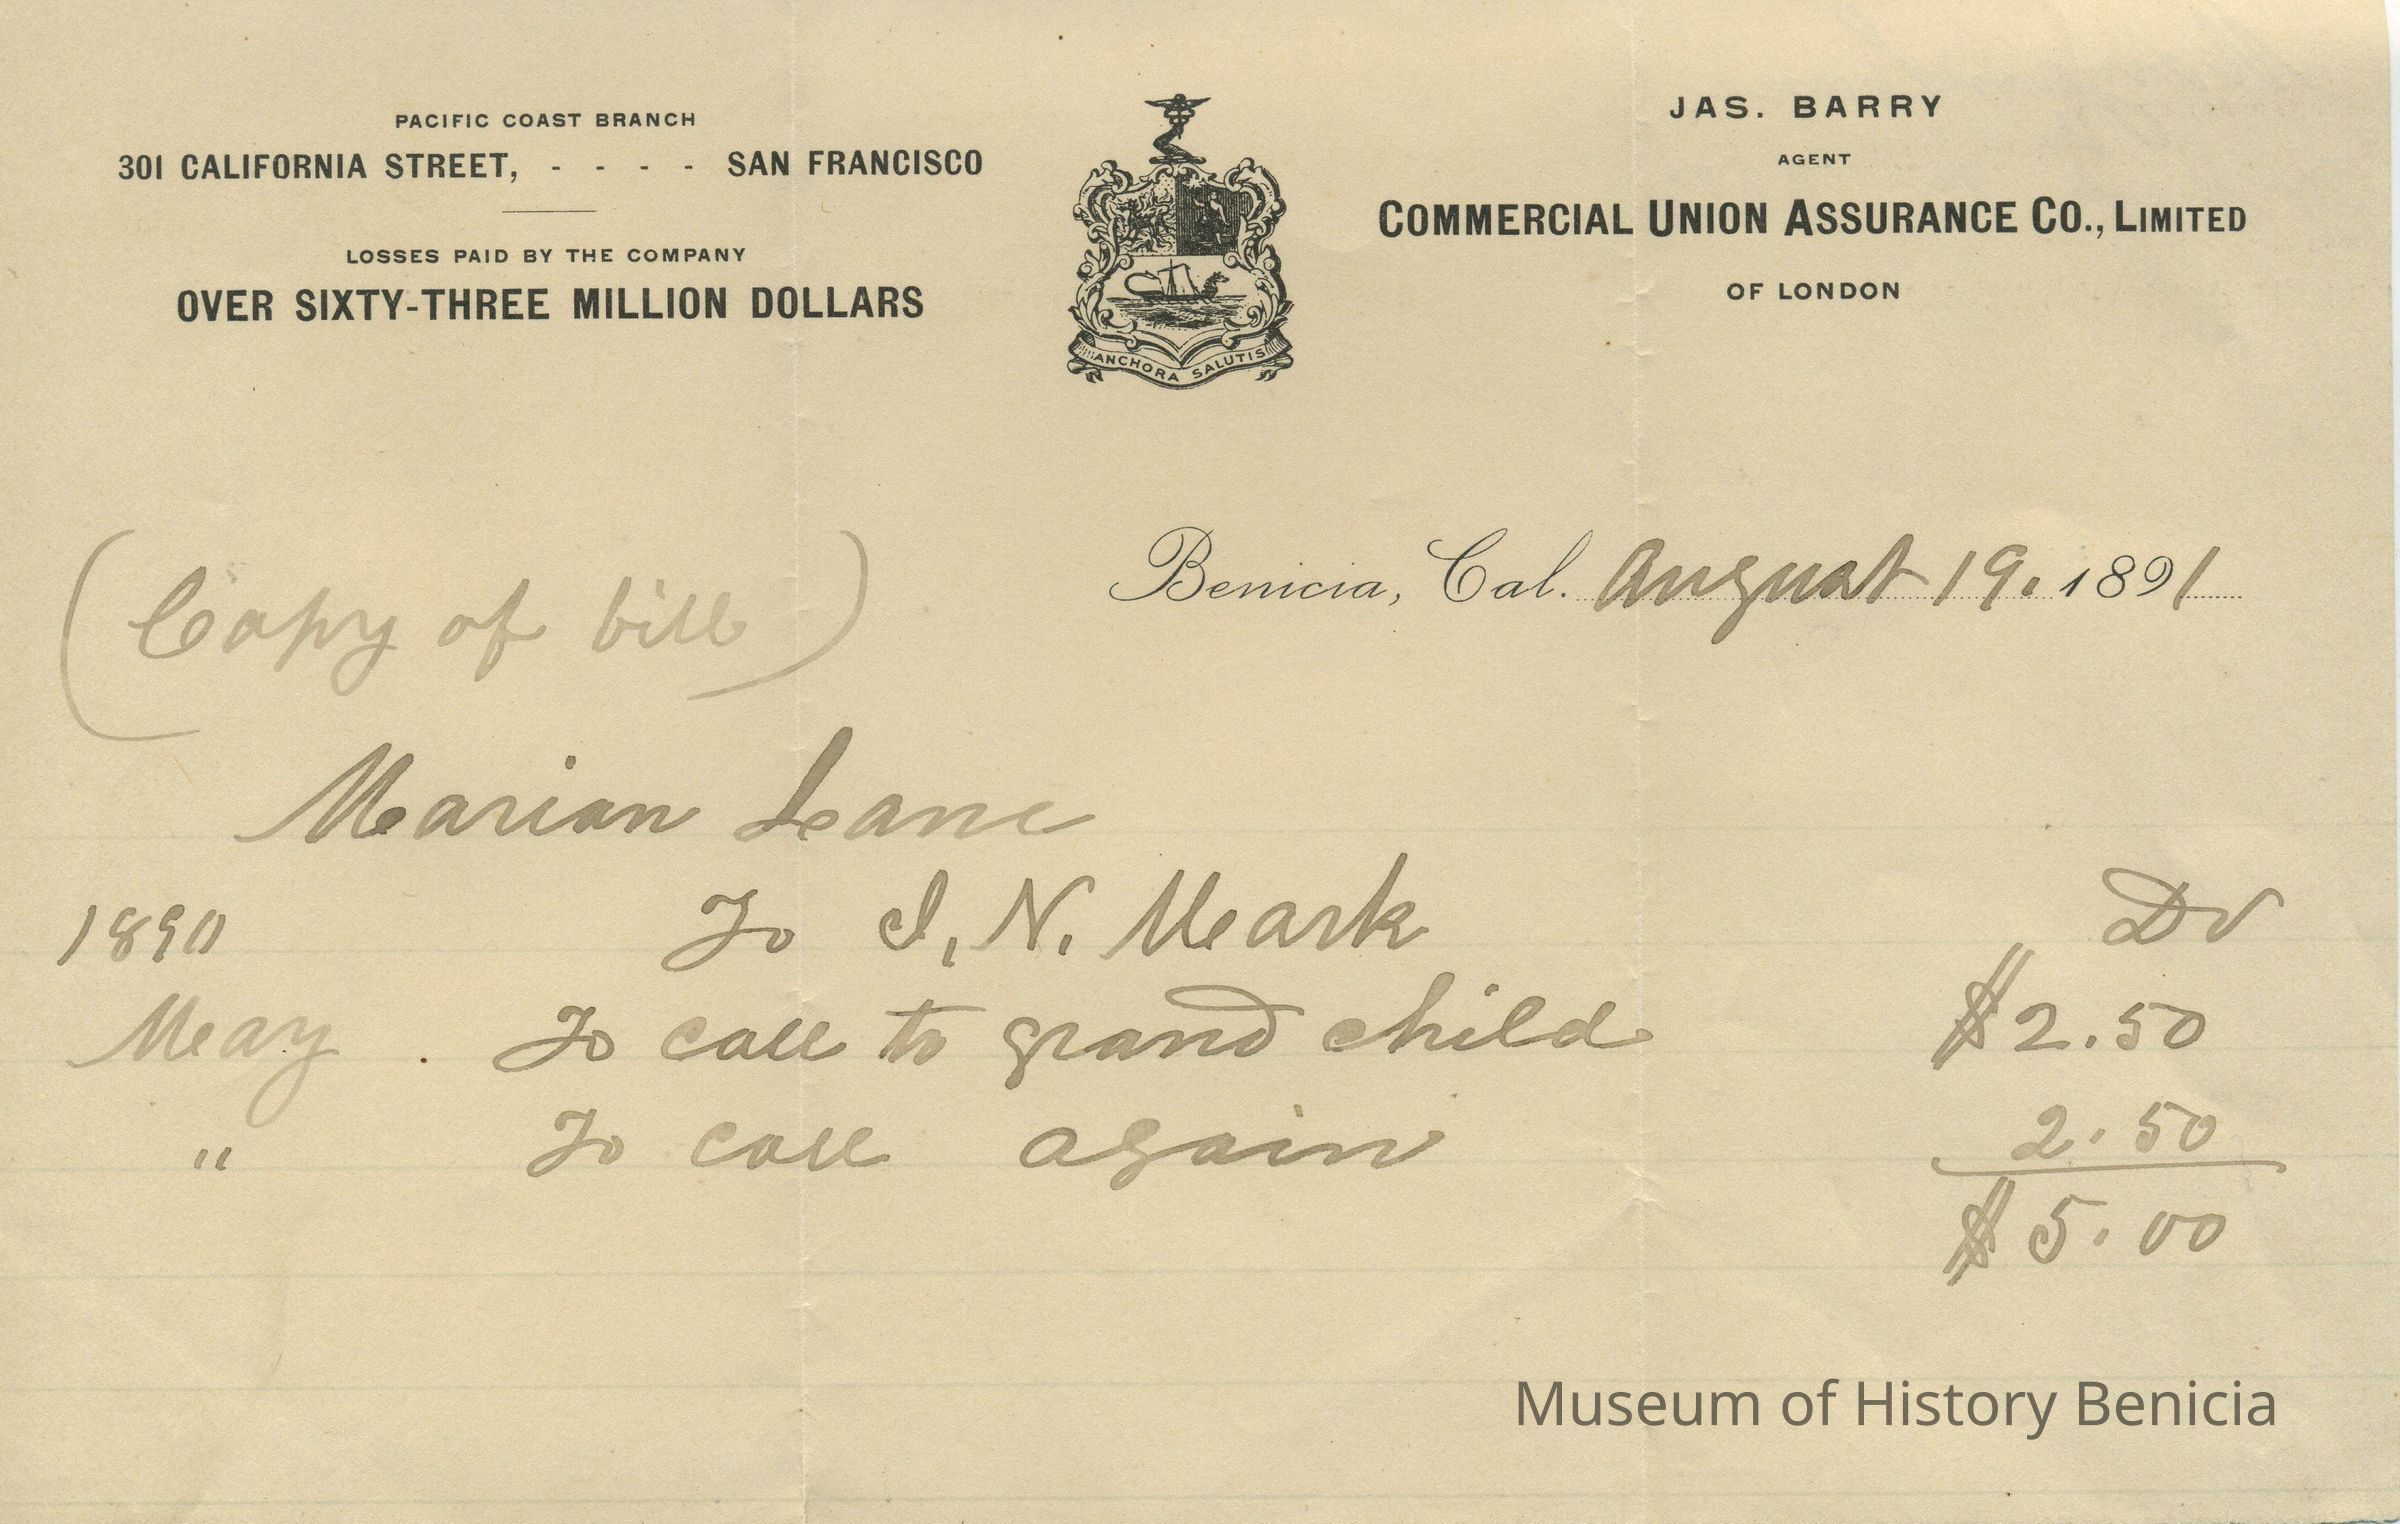 PACIFIC COAST BRANCH
301 CALIFORNIA STREET, - - - - SAN FRANCISCO
LOSSES PAID BY THE COMPANY
OVER SIXTY-THREE MILLION DOLLARS
ANCHORA SALUTIS
JAS. BARRY
AGENT
COMMERCIAL UNION ASSURANCE CO., LIMITED
OF LONDON
Benicia, Cal. August 19. 1891
(Copy of bill)
Marian Lane
1890 To I. N. Mark Dr
May To call to grand child $2.50
" To call again 2.50
$5.00
Museum of History Benicia